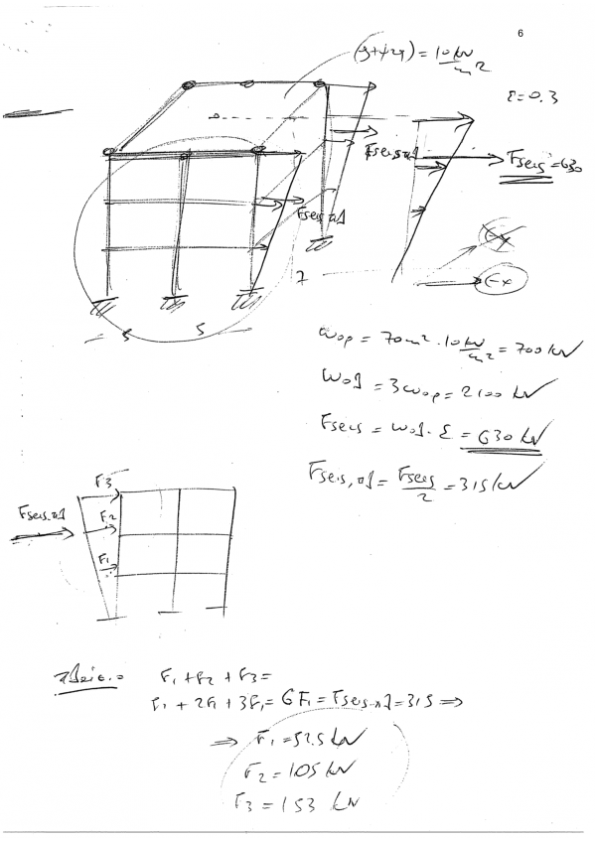 6
(g+ψ2q) = 10 kN/m²
ε=0.3
Fseis,πλ
Fseis=630
Fseis,πλ
Ex
7
Ex
5 5
Wορ = 70m² · 10 kN/m² = 700 kN
Wολ = 3Wορ = 2100 kN
Fseis = Wολ · ε = 630 kN
Fseis,πλ = Fseis/2 = 315 kN
F3
Fseis,πλ
F2
F1
F1 + F2 + F3 =
F1 + 2F1 + 3F1 = 6F1 = Fseis-πλ = 315 ⇒
⇒ F1 = 52.5 kN
F2 = 105 kN
F3 = 153 kN